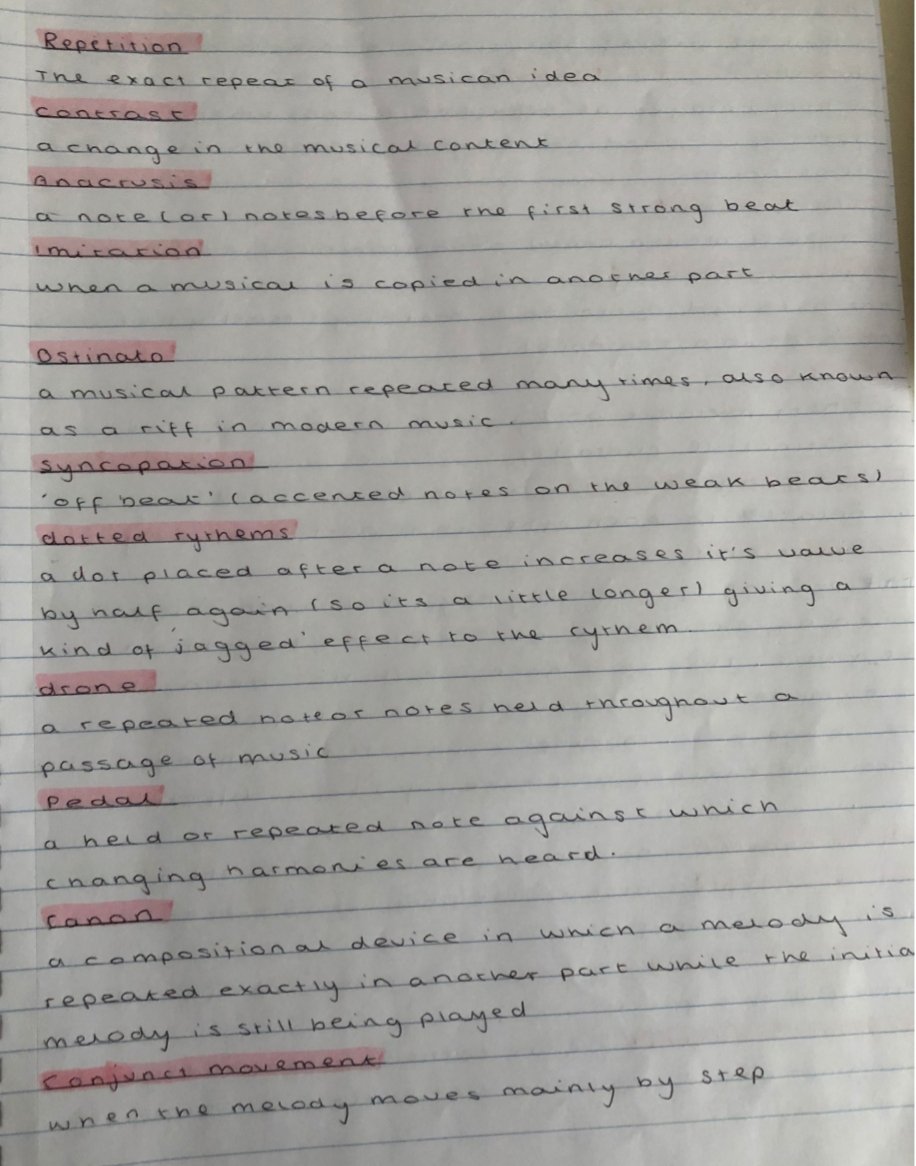 Repetition
The exact repeat of a musican idea
contrast
a change in the musical content
Anacrusis
a note (or) notes before the first strong beat
imitation
when a musical is copied in another part
Ostinato
a musical pattern repeated many times, also known
as a riff in modern music.
syncopation
'off beat' (accented notes on the weak beats)
dotted rythems
a dot placed after a note increases it's value
by half again (so its a little longer) giving a
kind of 'jagged' effect to the rythem
drone
a repeated note or notes held throughout a
passage of music
Pedal
a held or repeated note against which
changing harmonies are heard.
Canon
a compositional device in which a melody is
repeated exactly in another part while the initia
melody is still being played
Conjunct movement
when the melody moves mainly by step